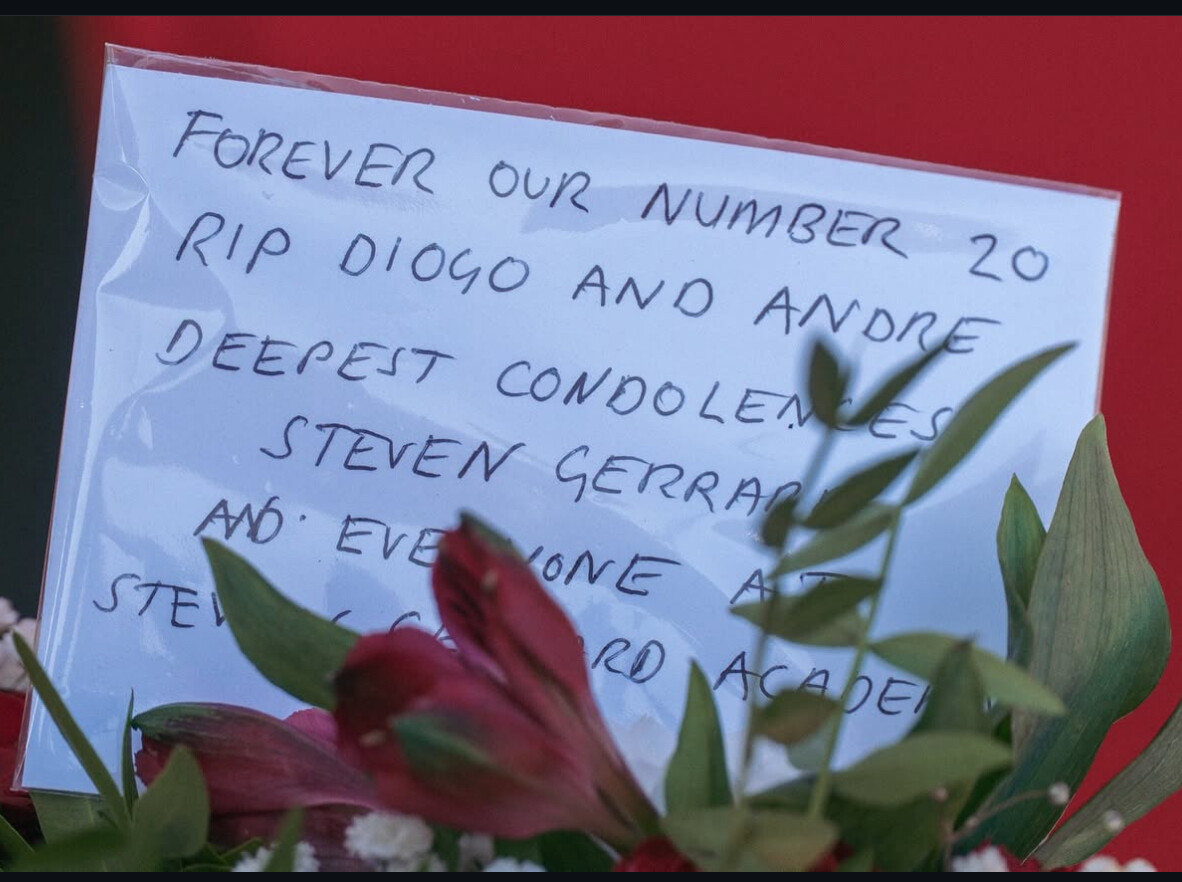 FOREVER OUR NUMBER 20
RIP DIOGO AND ANDRE
DEEPEST CONDOLENCES
STEVEN GERRARD
AND EVERYONE AT
STEVEN GERRARD ACADEMY